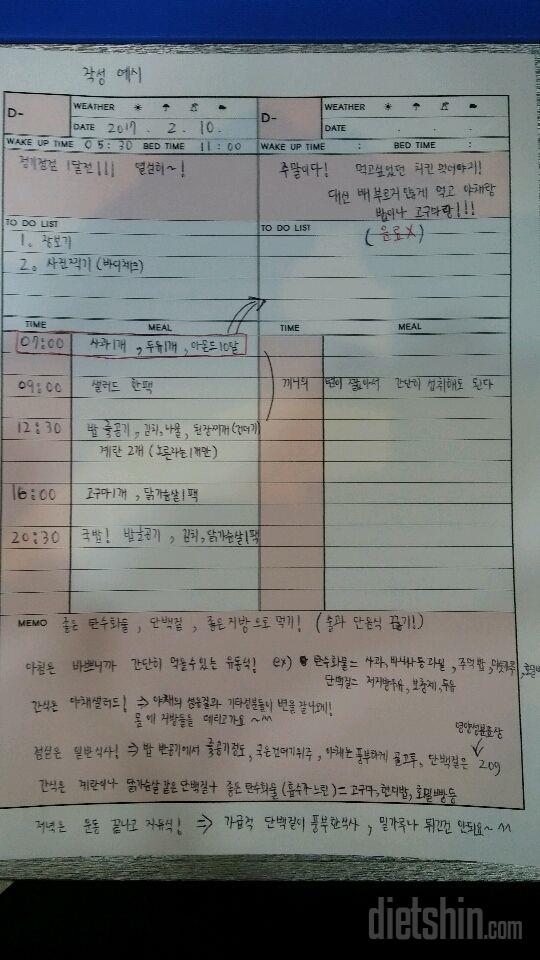 작성 예시
D- WEATHER
DATE 2017 . 2 . 10 .
WAKE UP TIME 05:30 BED TIME 11:00
정기점검 1달전!!! 열심히~!
TO DO LIST
1. 장보기
2. 사진찍기 (바디체크)
D- WEATHER
DATE . .
WAKE UP TIME : BED TIME :
주말이다! 먹고싶었던 치킨 먹어야지!
대신 배부르지 않게 먹고 야채랑
밥이나 고구마랑!!!
(음료X)
TO DO LIST
TIME MEAL TIME MEAL
07:00 사과1개, 두유1개, 아몬드10알
09:00 샐러드 한팩
끼니의 텀이 짧아서 간단히 섭취해도 된다
12:30 밥 공기, 김치, 나물, 된장찌개(건더기)
계란 2개 (노른자는 1개만)
16:00 고구마1개, 닭가슴살1팩
20:30 국밥! 밥 공기, 김치, 닭가슴살1팩
MEMO 좋은 탄수화물, 단백질, 좋은지방으로 먹기! (술과 단음식 끊기!)
아침은 바쁘니까 간단히 먹을수있는 유동식! ex) 탄수화물= 사과, 바나나등 과일, 주먹밥,
단백질= 저지방우유, 보충제, 두유
간식은 야채샐러드! ⇒ 야채의 섬유질과 기타성분들이 변을 잘나오게!
몸에 지방들을 데리고가요~^^
영양성분표상
점심은 일반식사! ⇒ 밥 반공기에서 정도, 국은건더기위주, 야채는 풍부하게 골고루, 단백질은 20g
간식은 계란이나 닭가슴살 같은 단백질+ 좋은 탄수화물 (흡수가 느린) = 고구마, 현미밥, 호밀빵등
저녁은 운동 끝나고 자유식! ⇒ 가급적 단백질이 풍부한식사, 밀가루나 튀긴건 안되요~^^
dietshin.com